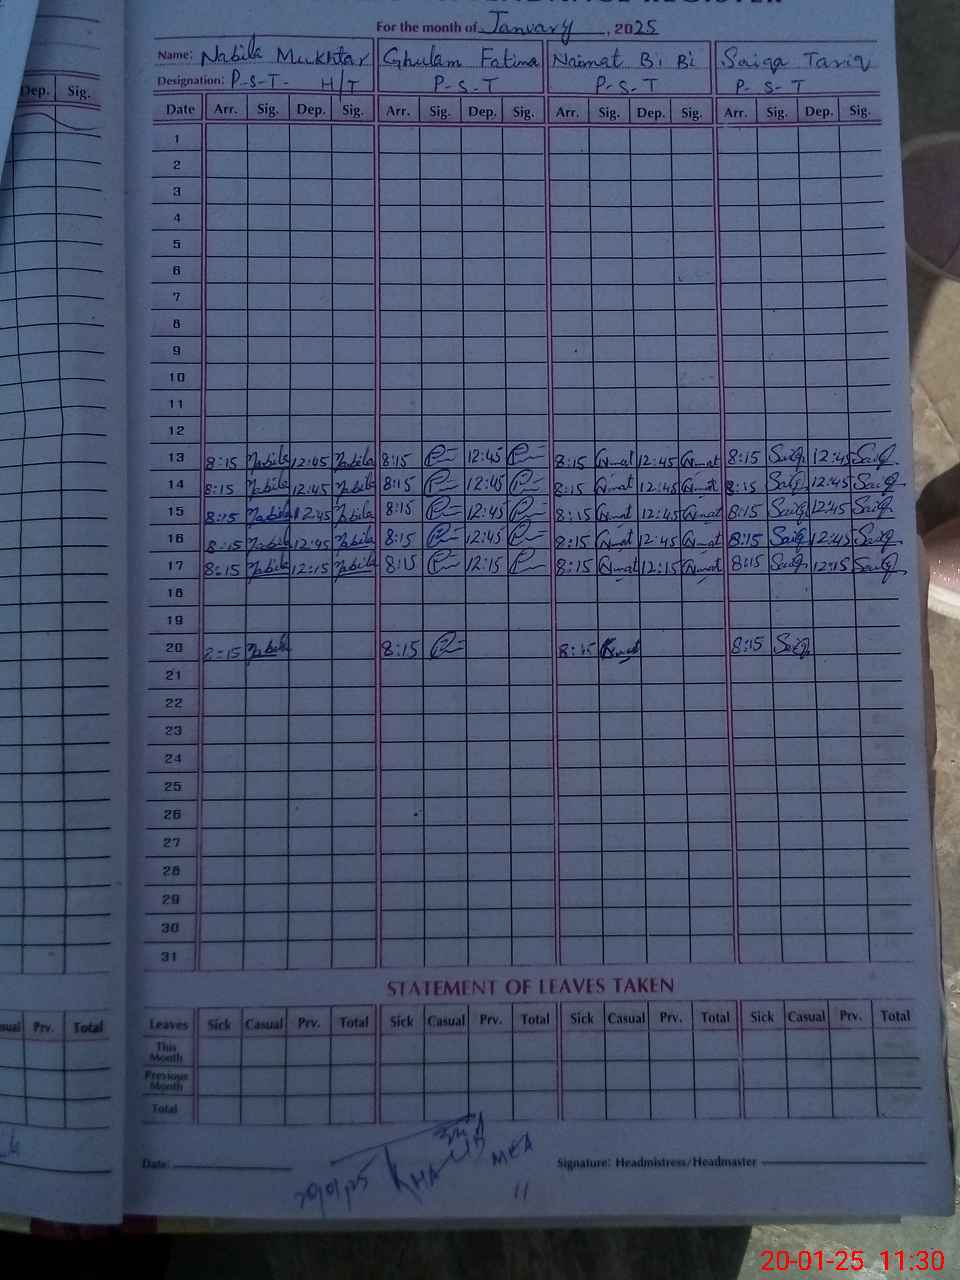 For the month of January, 2025
Name: Nabila Mukhtar Ghulam Fatima Naimat Bi Bi Saiqa Tariq
Designation: P-S-T- H/T P-S-T P-S-T P-S-T
Dep. Sig.
Date Arr. Sig. Dep. Sig. Arr. Sig. Dep. Sig. Arr. Sig. Dep. Sig. Arr. Sig. Dep. Sig.
1
2
3
4
5
6
7
8
9
10
11
12
13 8:15 Nabila 12:45 Nabila 8:15 12:45 8:15 Nimat 12:45 Nimat 8:15 Saiq 12:45 Saiq
14 8:15 Nabila 12:45 Nabila 8:15 12:45 8:15 Nimat 12:45 Nimat 8:15 Saiq 12:45 Saiq
15 8:15 Nabila 12:45 Nabila 8:15 12:45 8:15 Nimat 12:45 Nimat 8:15 Saiq 12:45 Saiq
16 8:15 Nabila 12:45 Nabila 8:15 12:45 8:15 Nimat 12:45 Nimat 8:15 Saiq 12:45 Saiq
17 8:15 Nabila 12:15 Nabila 8:15 12:15 8:15 Nimat 12:15 Nimat 8:15 Saiq 12:15 Saiq
18
19
20 Nabila 8:15 8:15 Nimat 8:15 Saiq
21
22
23
24
25
26
27
28
29
30
31
STATEMENT OF LEAVES TAKEN
Prv. Total
Leaves Sick Casual Prv. Total Sick Casual Prv. Total Sick Casual Prv. Total Sick Casual Prv. Total
This
Month
Previous
Month
Total
Date: Signature: Headmistress/Headmaster
20/01/25 MEA
20-01-25 11:30